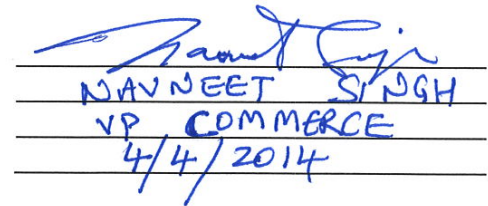 NAVNEET SINGH
VP COMMERCE
4/4/2014